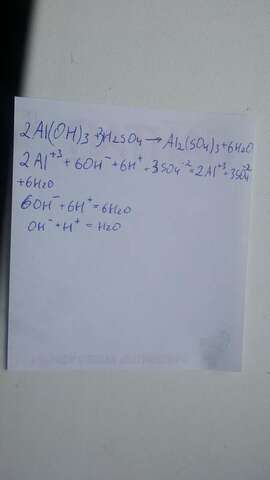 2Al(OH)3 + 3H2SO4 → Al2(SO4)3 + 6H2O
2Al⁺³ + 6OH⁻ + 6H⁺ + 3SO4⁻² = 2Al⁺³ + 3SO4⁻²
+ 6H2O
6OH⁻ + 6H⁺ = 6H2O
OH⁻ + H⁺ = H2O